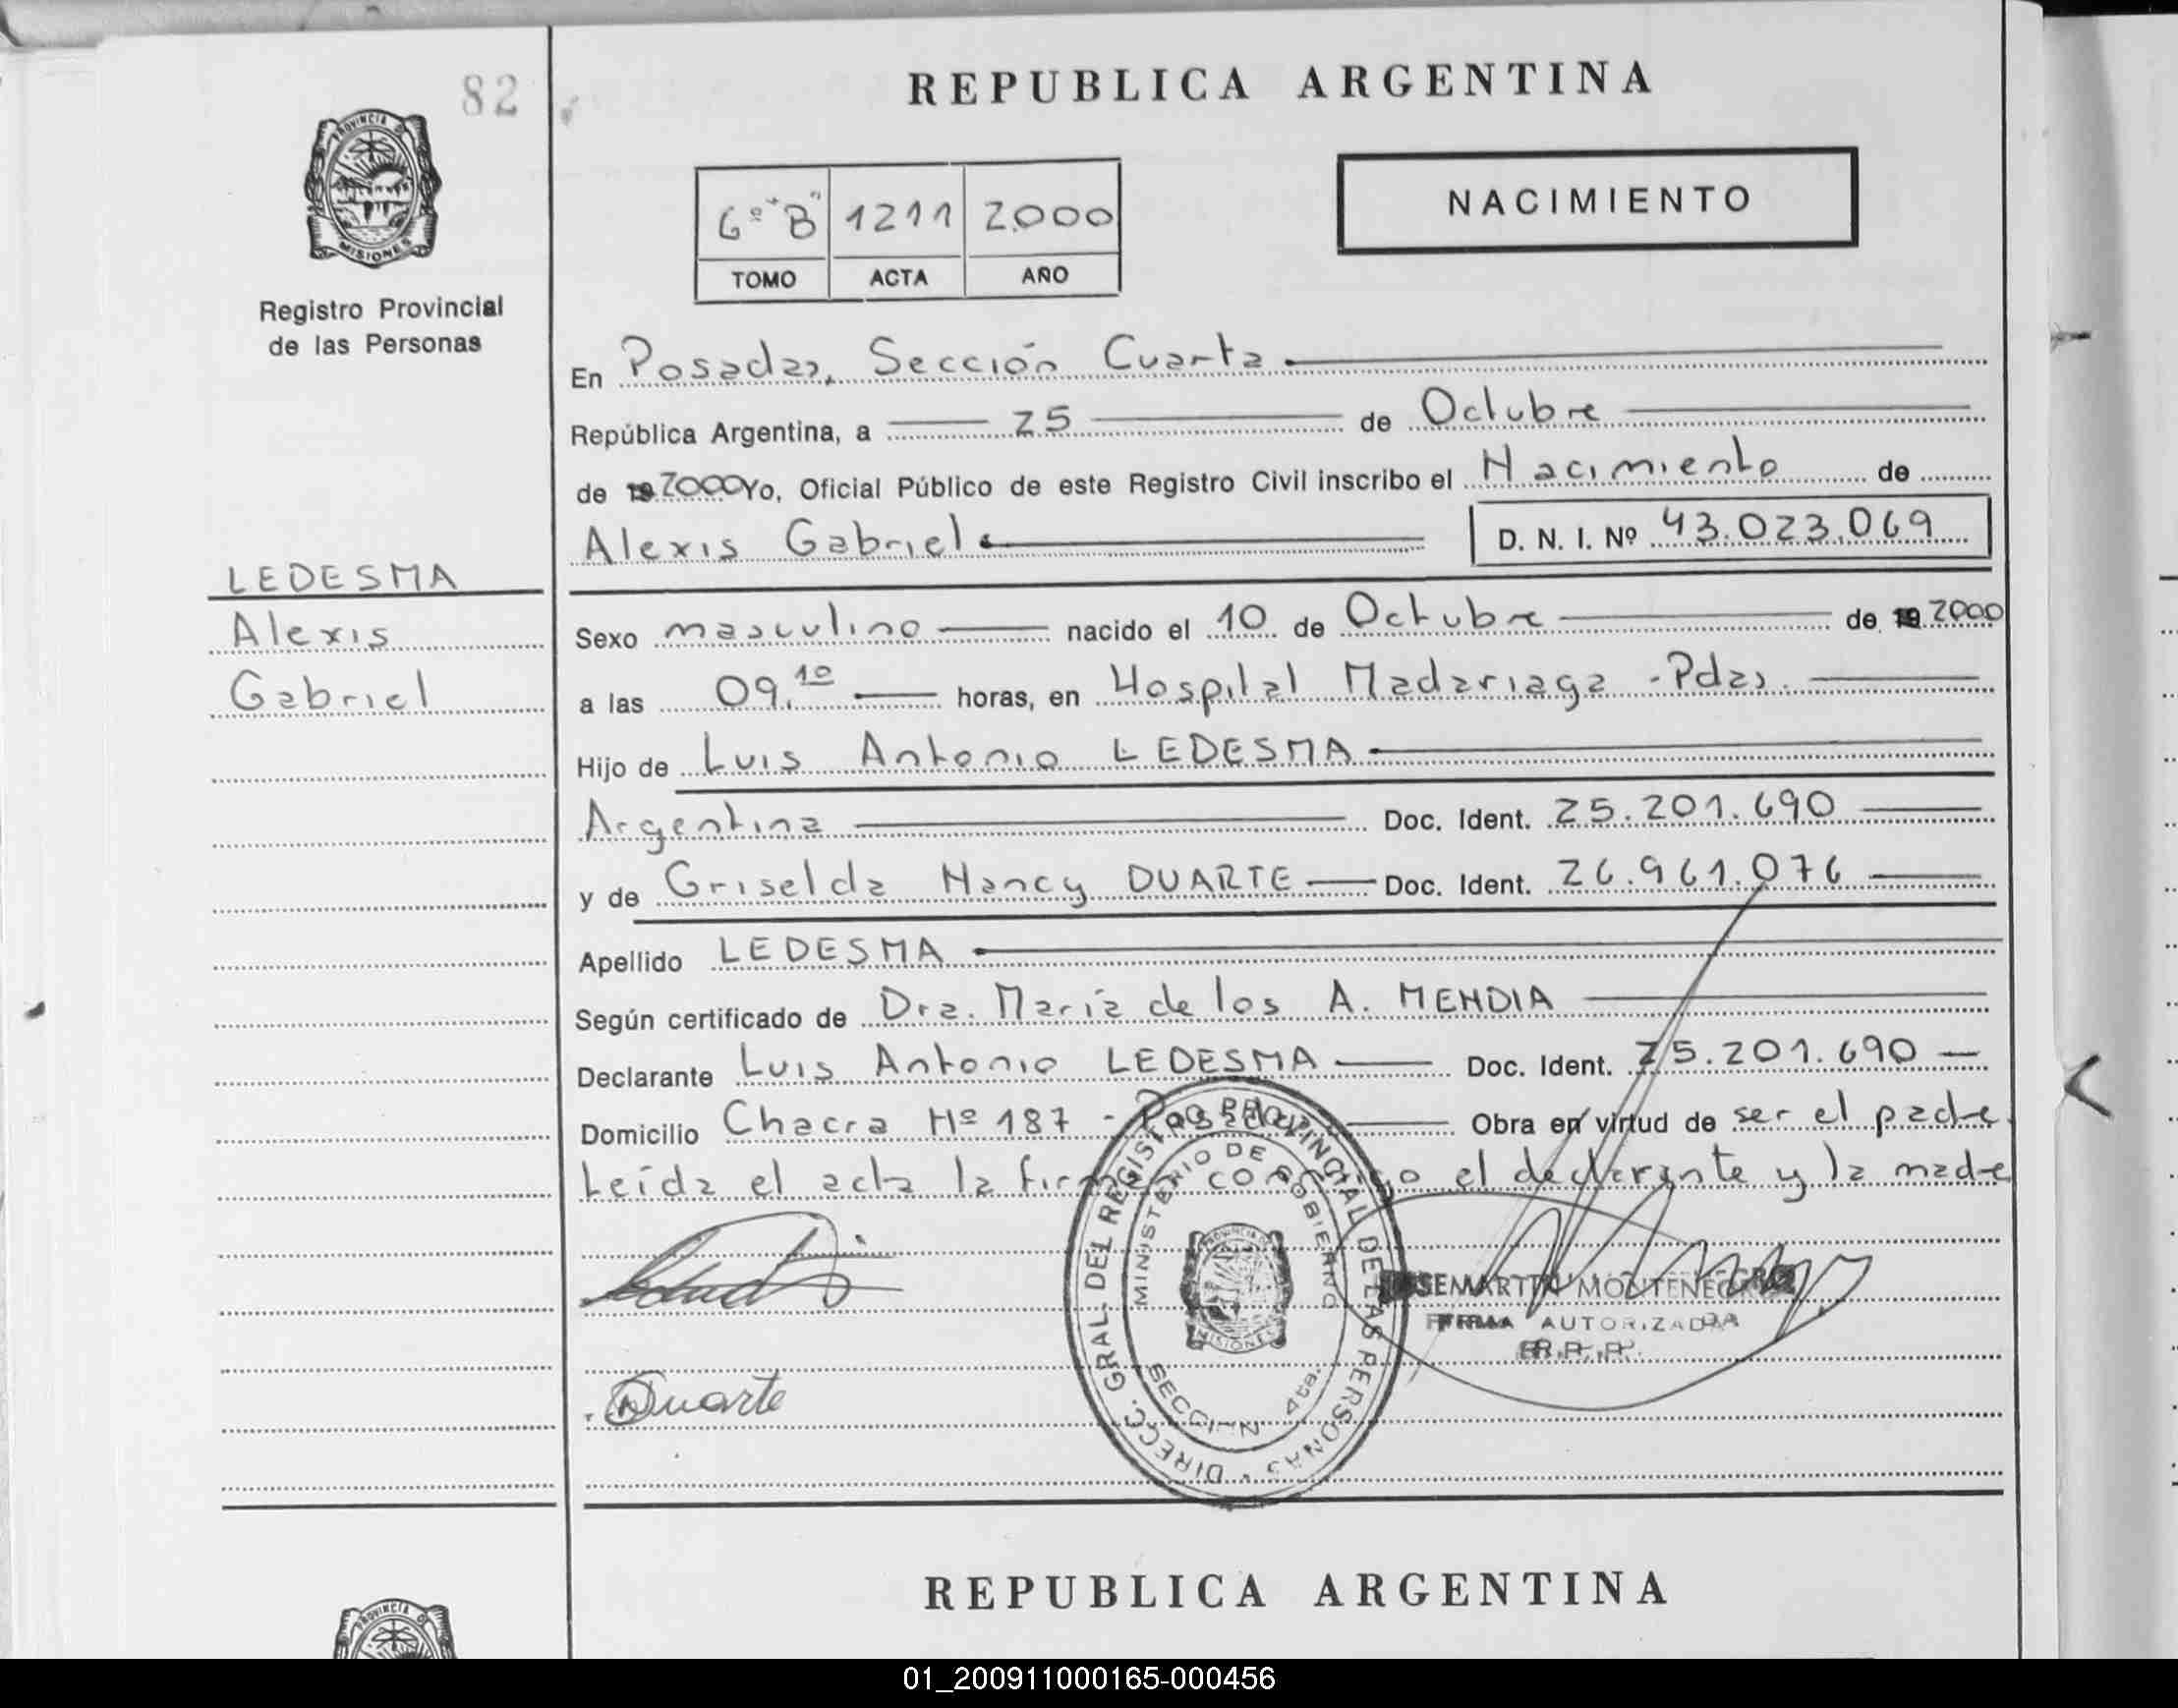 82
PROVINCIA DE
MISIONES
Registro Provincial
de las Personas
LEDESMA
Alexis
Gabriel
REPUBLICA ARGENTINA
6º "B" 1211 2.000
TOMO ACTA AÑO
NACIMIENTO
En Posadas, Sección Cuarta
República Argentina, a 25 de Octubre
de 19 2000 Yo, Oficial Público de este Registro Civil inscribo el Nacimiento de
Alexis Gabriel D. N. I. Nº 43.023.069
Sexo masculino nacido el 10 de Octubre de 19 2000
a las 09.10 horas, en Hospital Madariaga - Pdas.
Hijo de Luis Antonio LEDESMA
Argentina Doc. Ident. 25.201.690
y de Griselda Nancy DUARTE Doc. Ident. 26.961.076
Apellido LEDESMA
Según certificado de Dra. María de los A. MENDIA
Declarante Luis Antonio LEDESMA Doc. Ident. 25.201.690
Domicilio Chacra Nº 187 - Posadas Obra en virtud de ser el padre.
Leída el acta la firman el declarante y la madre
DIRECC. GRAL. DEL REGISTRO PROVINCIAL DE LAS PERSONAS
MINISTERIO DE GOBIERNO
PROVINCIA DE
MISIONES
SECCION 4ta.
JOSE MARTIN MONTENEGRO
FIRMA AUTORIZADA
R.P.P.
Duarte
REPUBLICA ARGENTINA
PROVINCIA DE
01_200911000165-000456